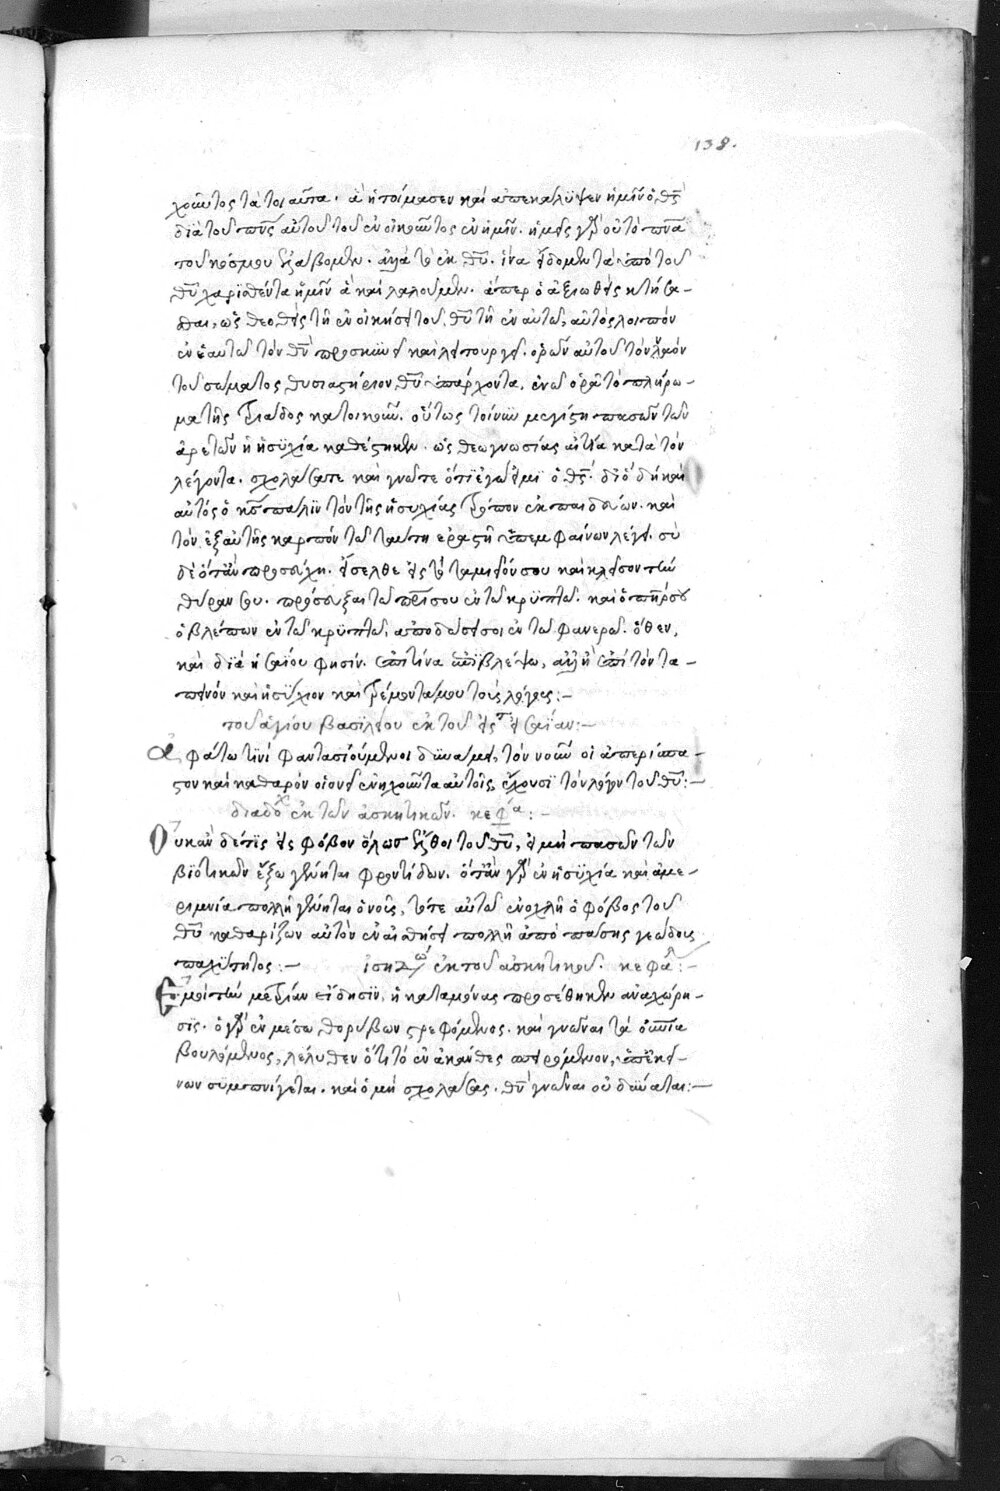 138.
χοῦντος τὰ τοιαῦτα. ἃ ἡτοίμασεν καὶ ἀπεκάλυψεν ἡμῖν ὁ θς
διὰ τοῦ πνς αὐτοῦ τοῦ ἐνοικοῦντος ἐν ἡμῖν. ἡμεῖς γὰρ οὐ τὸ πνα
τοῦ κόσμου ἐλάβομεν. ἀλλὰ τὸ ἐκ θυ. ἵνα εἴδομεν τὰ ὑπὸ τοῦ
θυ χαρισθέντα ἡμῖν ἃ καὶ λαλοῦμεν. ἅπερ ὁ ἀξιωθεὶς κτήσα-
σθαι, ὡς θεωθεὶς τῇ ἐνοικήσει τοῦ θυ τῇ ἐν αὐτῶ, αὐτὸς λοιπὸν
ἐν ἑαυτῶ τὸν θν προσκυνεῖ καὶ λειτουργεῖ. ὁρῶν αὐτοῦ τὸν ναὸν
τοῦ σώματος θυσιαστήριον θυ ὑπάρχοντα. ἐν ὧ ὁρᾶ τὸ πλήρω-
μα τῆς τριάδος κατοικοῦν. οὕτως τοίνυν μεγίστη πασῶν τῶν
ἀρετῶν ἡ ἡσυχία καθέστηκεν. ὡς θεωγνωσίας αἰτία κατὰ τὸν
λέγοντα. σχολάσατε καὶ γνῶτε ὅτι ἐγώ εἰμι ὁ θς. διὸ δὴ καὶ
αὐτὸς ὁ κς πάλιν τὸν τῆς ἡσυχίας τρόπον ἐκπαιδεύων. καὶ
τὸν ἐξ αὐτῆς καρπὸν τῶ ταύτη ἐραστῆ ὑπεμφαίνων λέγει. σὺ
δὲ ὅταν προσεύχη. εἴσελθε εἰς τὸ ταμιεῖόν σου καὶ κλεῖσον τὴν
θύραν σου. πρόσευξαι τῶ πρι σου ἐν τῶ κρυπτῶ. καὶ ὁ πηρ σου
ὁ βλέπων ἐν τῶ κρυπτῶ, ἀποδώσει σοι ἐν τῶ φανερῶ. ὅθεν,
καὶ διὰ ἡσαίου φησὶν. ἐπὶ τίνα ἐπιβλέψω, ἀλλ' ἢ ἐπὶ τὸν τα-
πεινὸν καὶ ἡσύχιον καὶ τρέμοντά μου τοὺς λόγους:—
τοῦ ἁγίου βασιλείου ἐκ τοῦ εἰς τ ἡσαΐαν:—
Ἀφάτω τινὶ φαντασιούμενοι δυνάμει, τὸν νοῦν οἱ ἀπερίσπα-
στον καὶ καθαρὸν οἱονεὶ ἐνηχοῦντα αὐτοῖς ἔχουσι τὸν λόγον τοῦ θυ:—
διαδόχ ἐκ τῶν ἀσκητικῶν. κεφα:—
Οὐκ ἂν δέ τις εἰς φόβον ὅλως ἔλθοι τοῦ θυ, εἰ μὴ πασῶν τῶν
βιωτικῶν ἔξω γένηται φροντίδων. ὅταν γὰρ ἐν ἡσυχία καὶ ἀμε-
ριμνία πολλῆ γένηται ὁ νοῦς, τότε αὐτῶ ἐνοχλῆ ὁ φόβος τοῦ
θυ καθαρίζων αὐτὸν ἐν αἰσθήσει πολλῆ ἀπὸ πάσης γεώδους
παχύτητος:— ἰσηδώ ἐκ τοῦ ἀσκητικοῦ. κεφα:—
Ἐμοὶ τὴν μετρίαν εἴδησιν, ἡ καταμόνας προσέθηκεν ἀναχώρη-
σις. ὁ γὰρ ἐν μέσω θορύβων στρεφόμενος. καὶ γνῶναι τὰ οὐνια
βουλόμενος, λέληθεν ὅτι τὸ ἐν ἀκάνθαις σπειρόμενον, ὑπ' ἐκεί-
νων συμπνίγεται. καὶ ὁ μὴ σχολάσας. θν γνῶναι οὐ δύναται:—